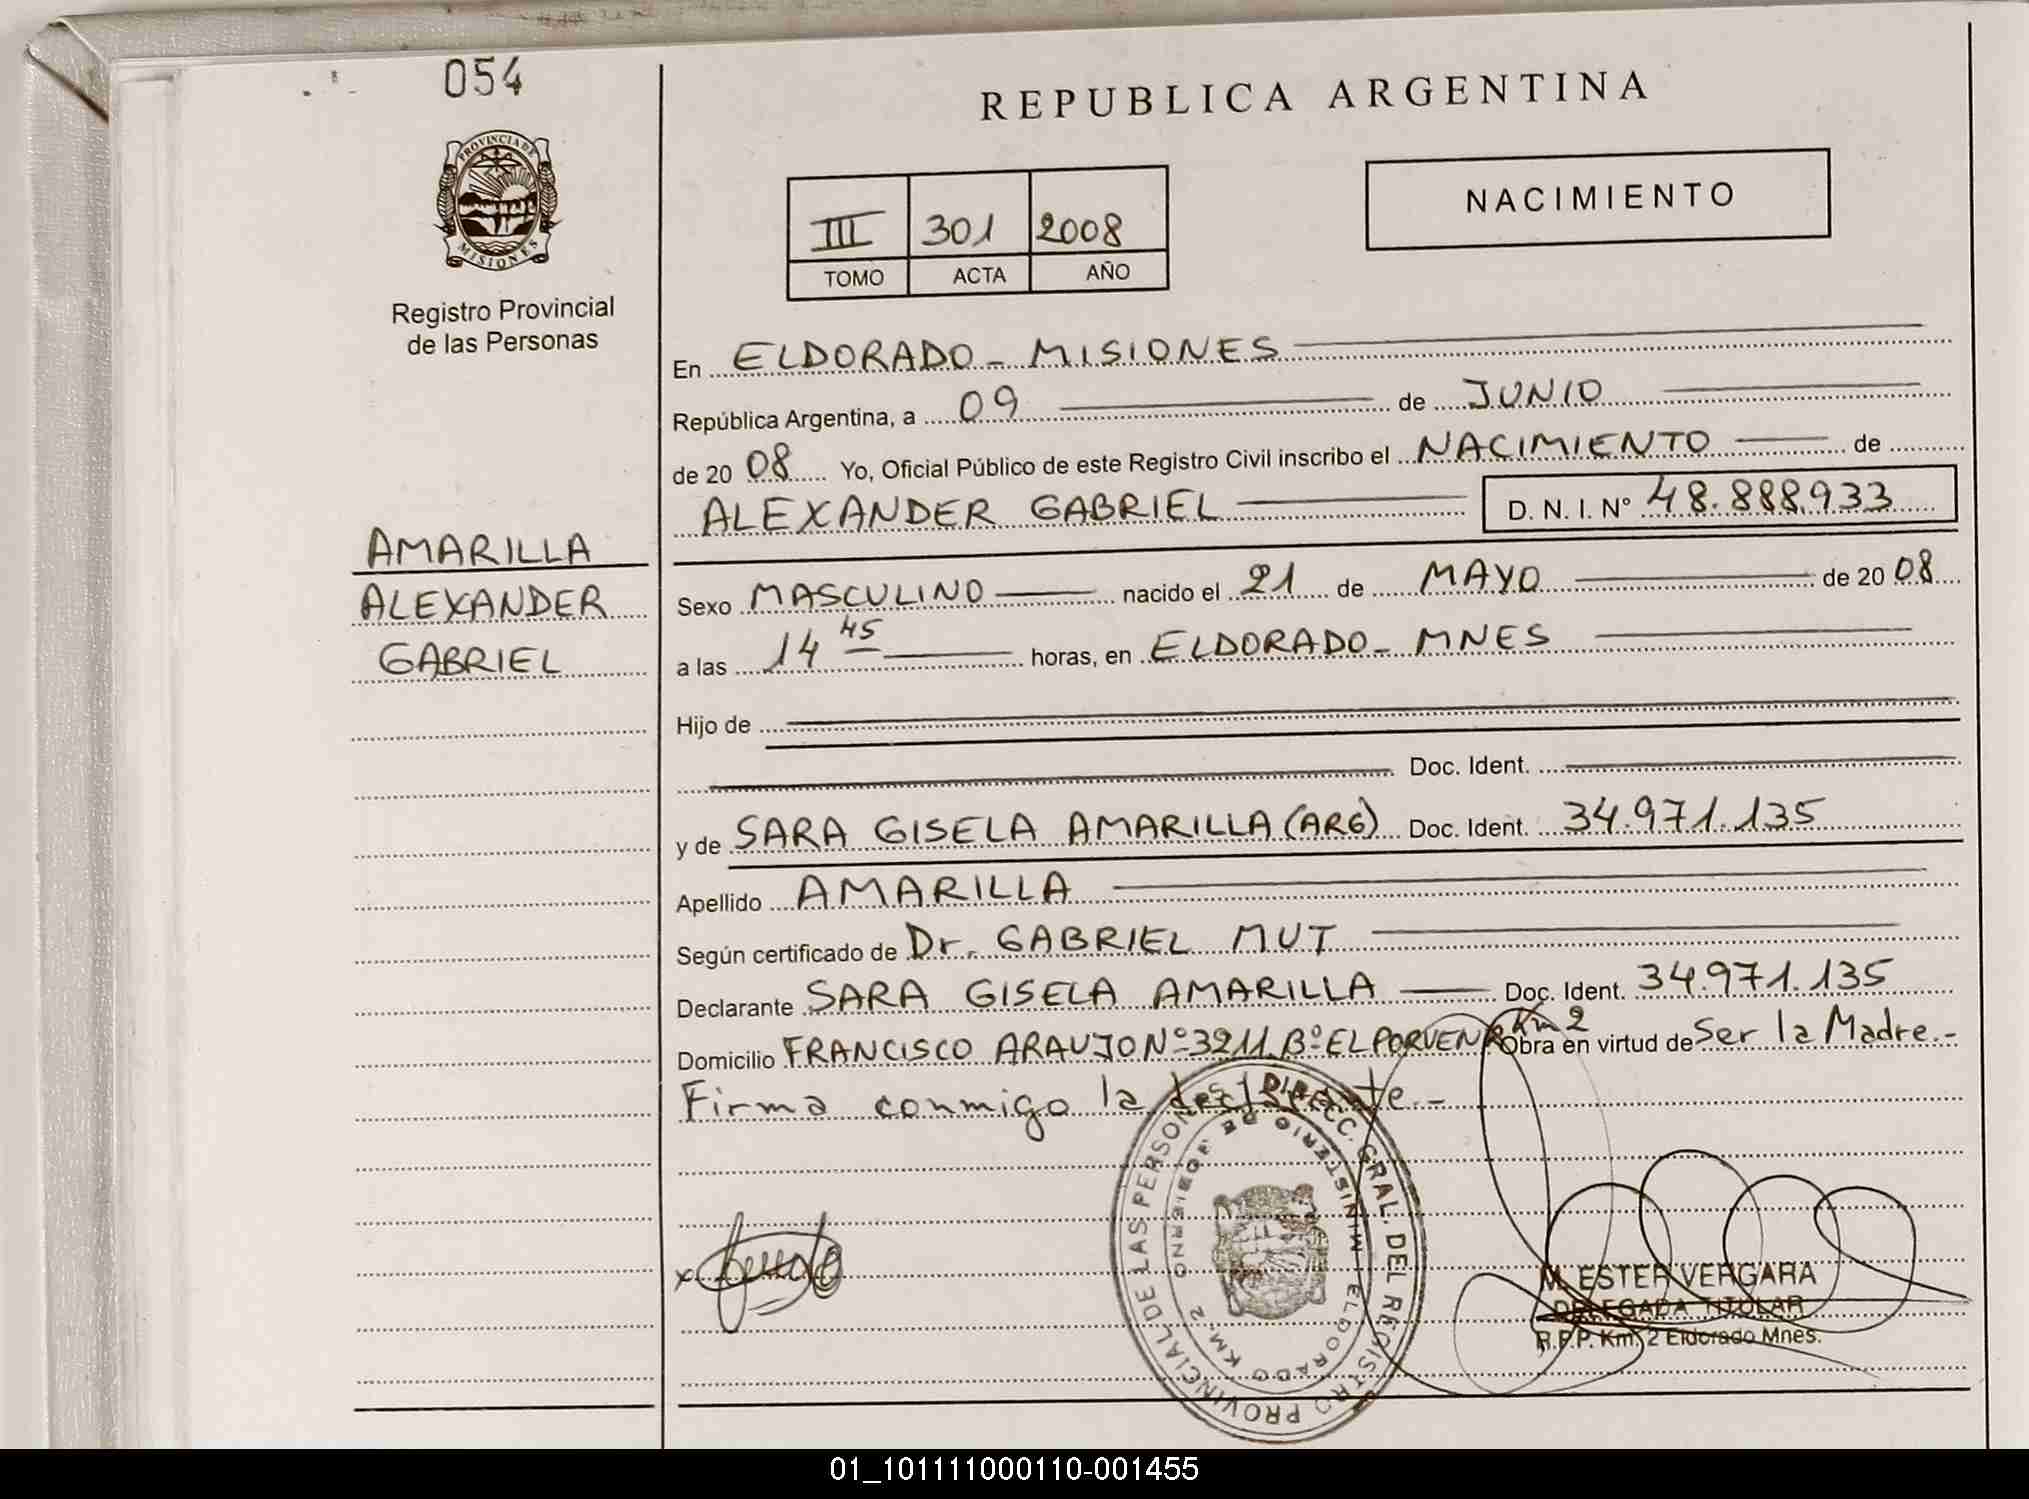 054
PROVINCIA DE
MISIONES
Registro Provincial
de las Personas
AMARILLA
ALEXANDER
GABRIEL
REPUBLICA ARGENTINA
III 301 2008
TOMO ACTA AÑO
NACIMIENTO
En ELDORADO - MISIONES
República Argentina, a 09 de JUNIO
de 20 08 Yo, Oficial Público de este Registro Civil inscribo el NACIMIENTO de
ALEXANDER GABRIEL D. N. I. Nº 48.888.933
Sexo MASCULINO nacido el 21 de MAYO de 20 08
a las 14 45 horas, en ELDORADO - MNES
Hijo de
Doc. Ident.
y de SARA GISELA AMARILLA (ARG) Doc. Ident. 34.971.135
Apellido AMARILLA
Según certificado de Dr. GABRIEL MUT
Declarante SARA GISELA AMARILLA Doc. Ident. 34.971.135
Domicilio FRANCISCO ARAUJO Nº 3211 Bº EL PORVENIR Km 2 Obra en virtud de Ser la Madre.-
Firma conmigo la declarante.-
DIRECC. GRAL. DEL REGISTRO PROVINCIAL DE LAS PERSONAS
MINISTERIO DE GOBIERNO
ELDORADO KM. 2
M. ESTER VERGARA
DELEGADA TITULAR
R.P.P. Km. 2 Eldorado Mnes.
01_101111000110-001455